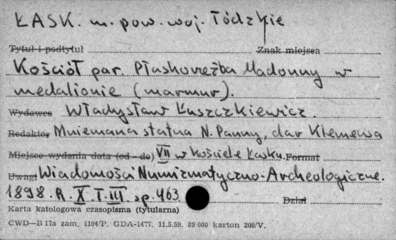 ŁASK. m. pow. woj. Łódzkie
Tytuł i podtytuł Znak miejsca
Kościół par. Płaskorzeźba Madonny w
medalionie (marmur).
Wydawca Władysław Łuszczkiewicz.
Redaktor Mniemana statua N. Panny, dar Klemensa
Miejsce wydania data (od - do) VII w kościele Łasku. Format
Uwagi Wiadomości Numizmatyczno-Archeologiczne.
1898. R. X. T. III sp. 463. Dział
Karta katalogowa czasopisma (tytularna)
CWD—B 17a zam. GDA-1477, 11.5.59, 89 000 karton 200/V.